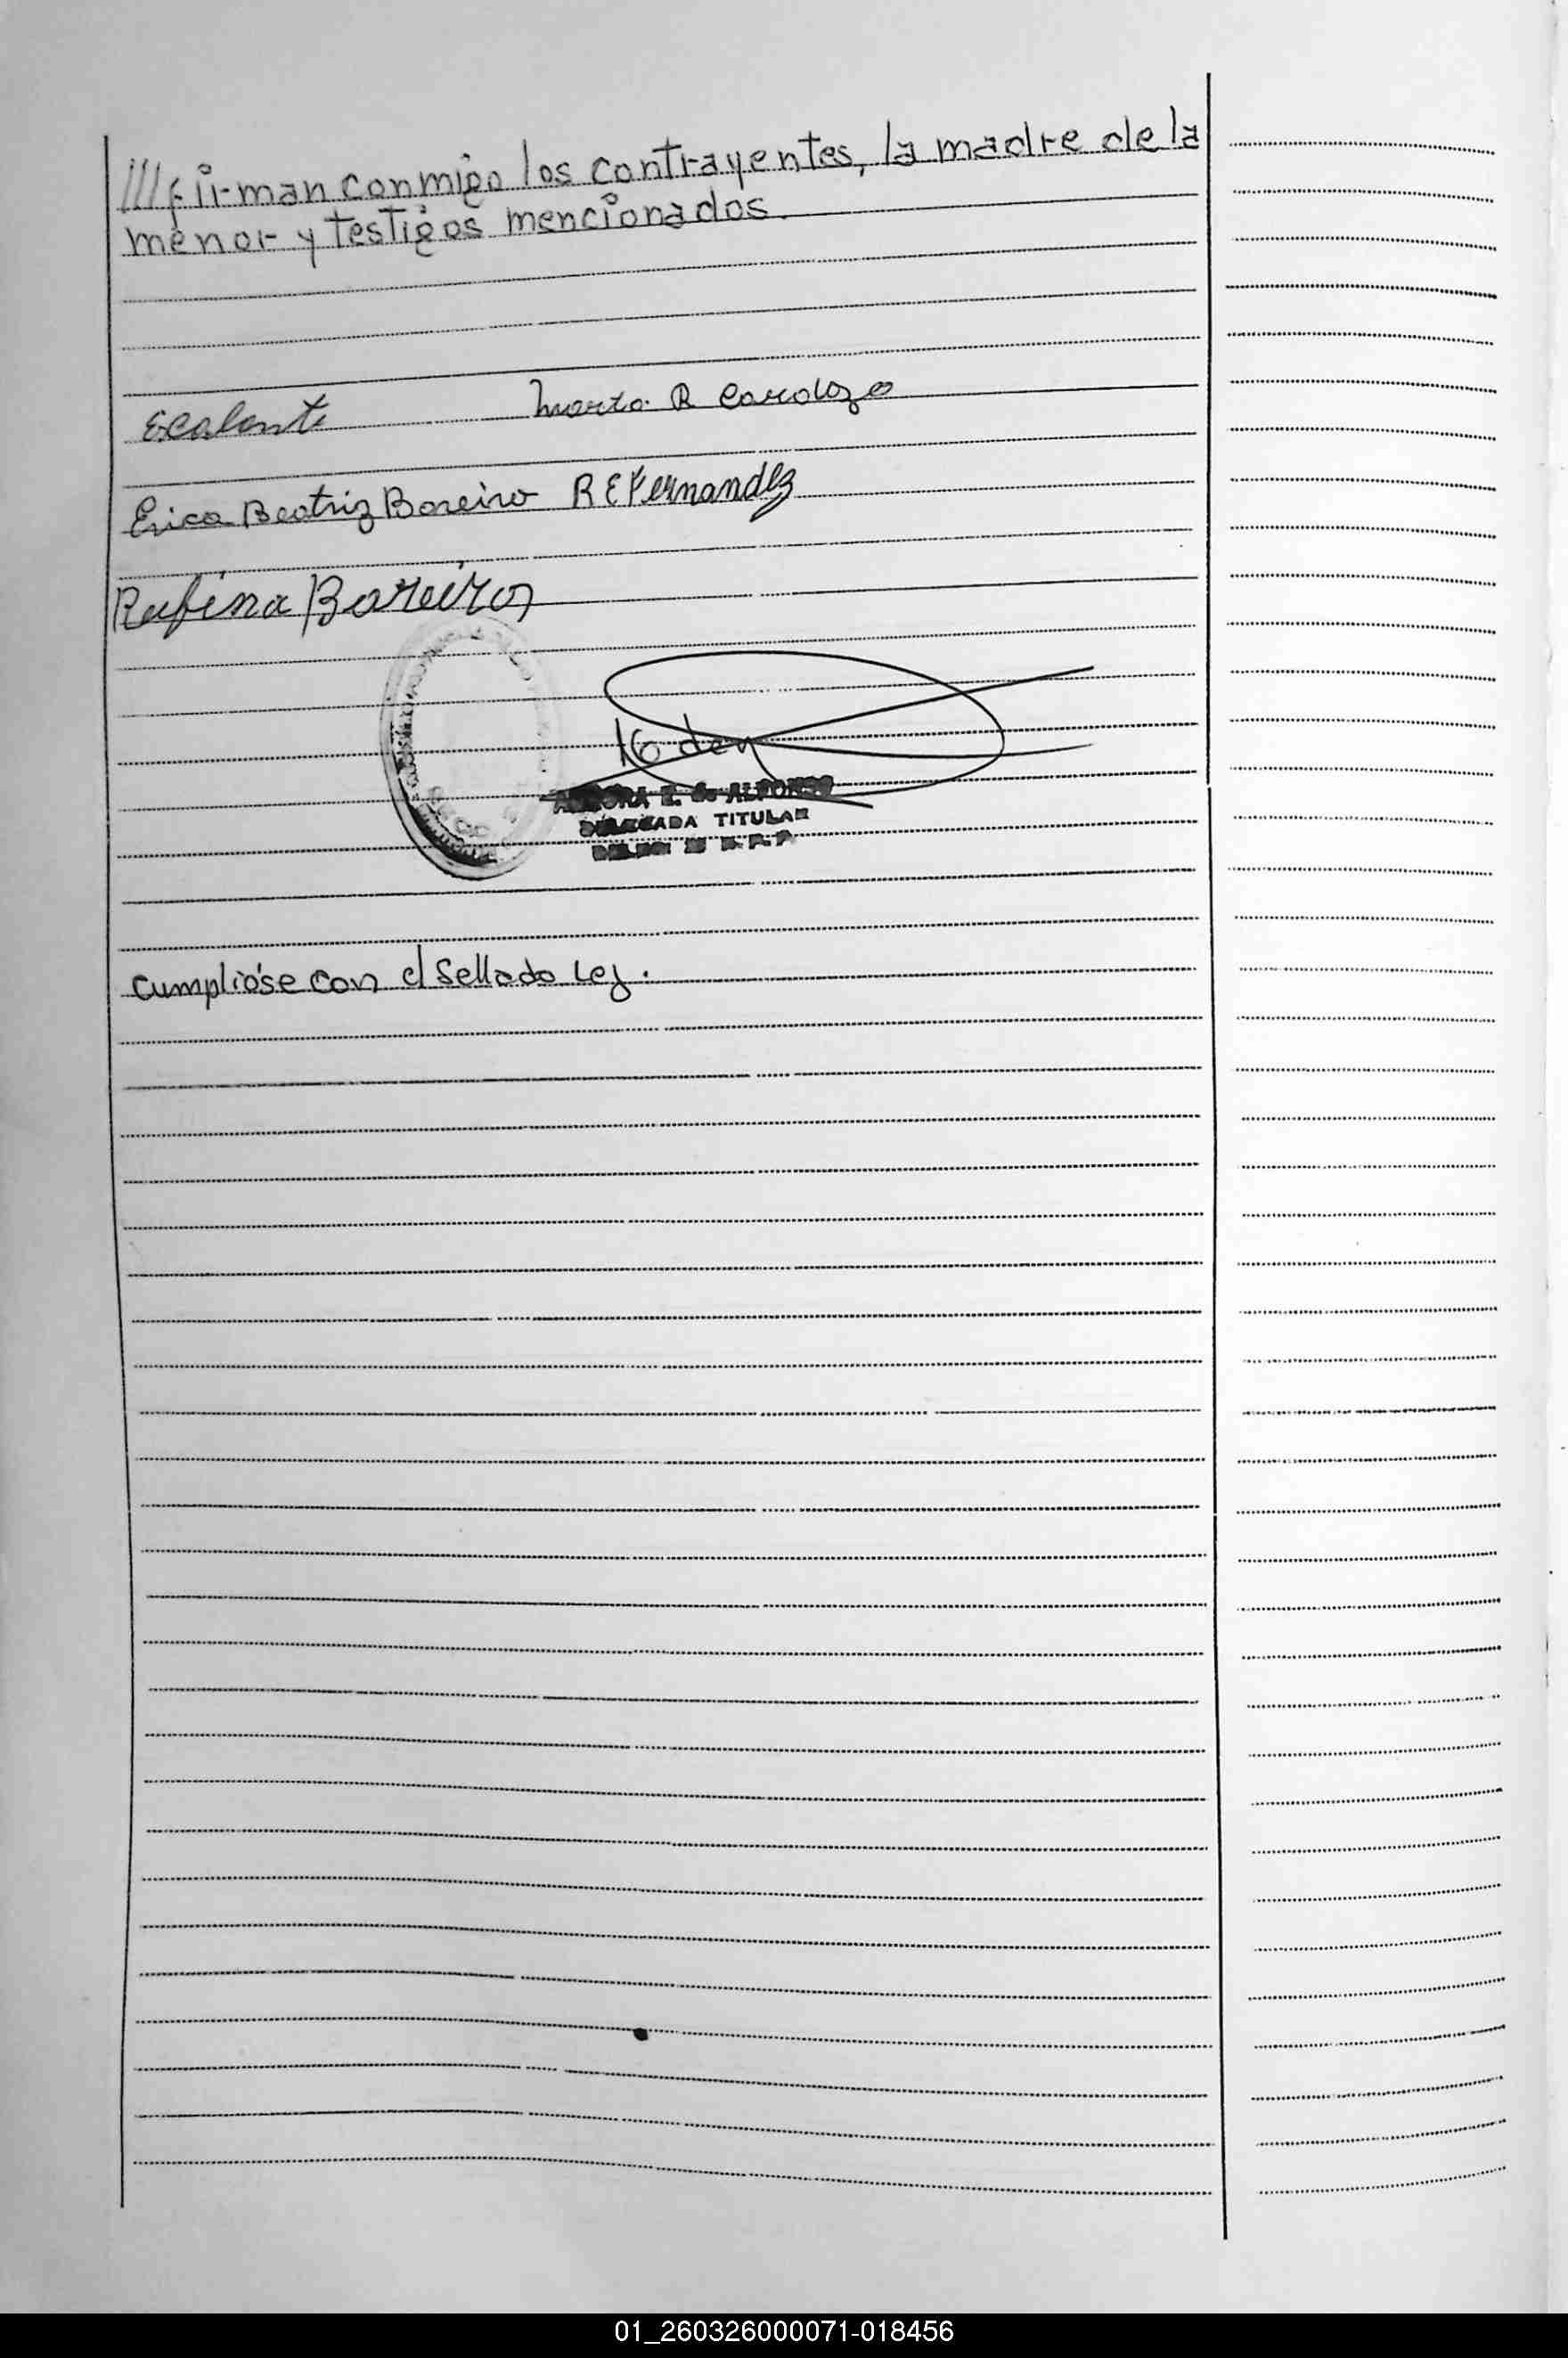 ///firman conmigo los contrayentes, la madre de la
menor y testigos mencionados.
Escalante Marta R Cardozo
Erica Beatriz Bareiro R E Fernandez
Rufina Bareiro
E. G. ALFONSO
DELEGADA TITULAR
R. P. P
Cumplióse con el Sellado Ley.
01_260326000071-018456